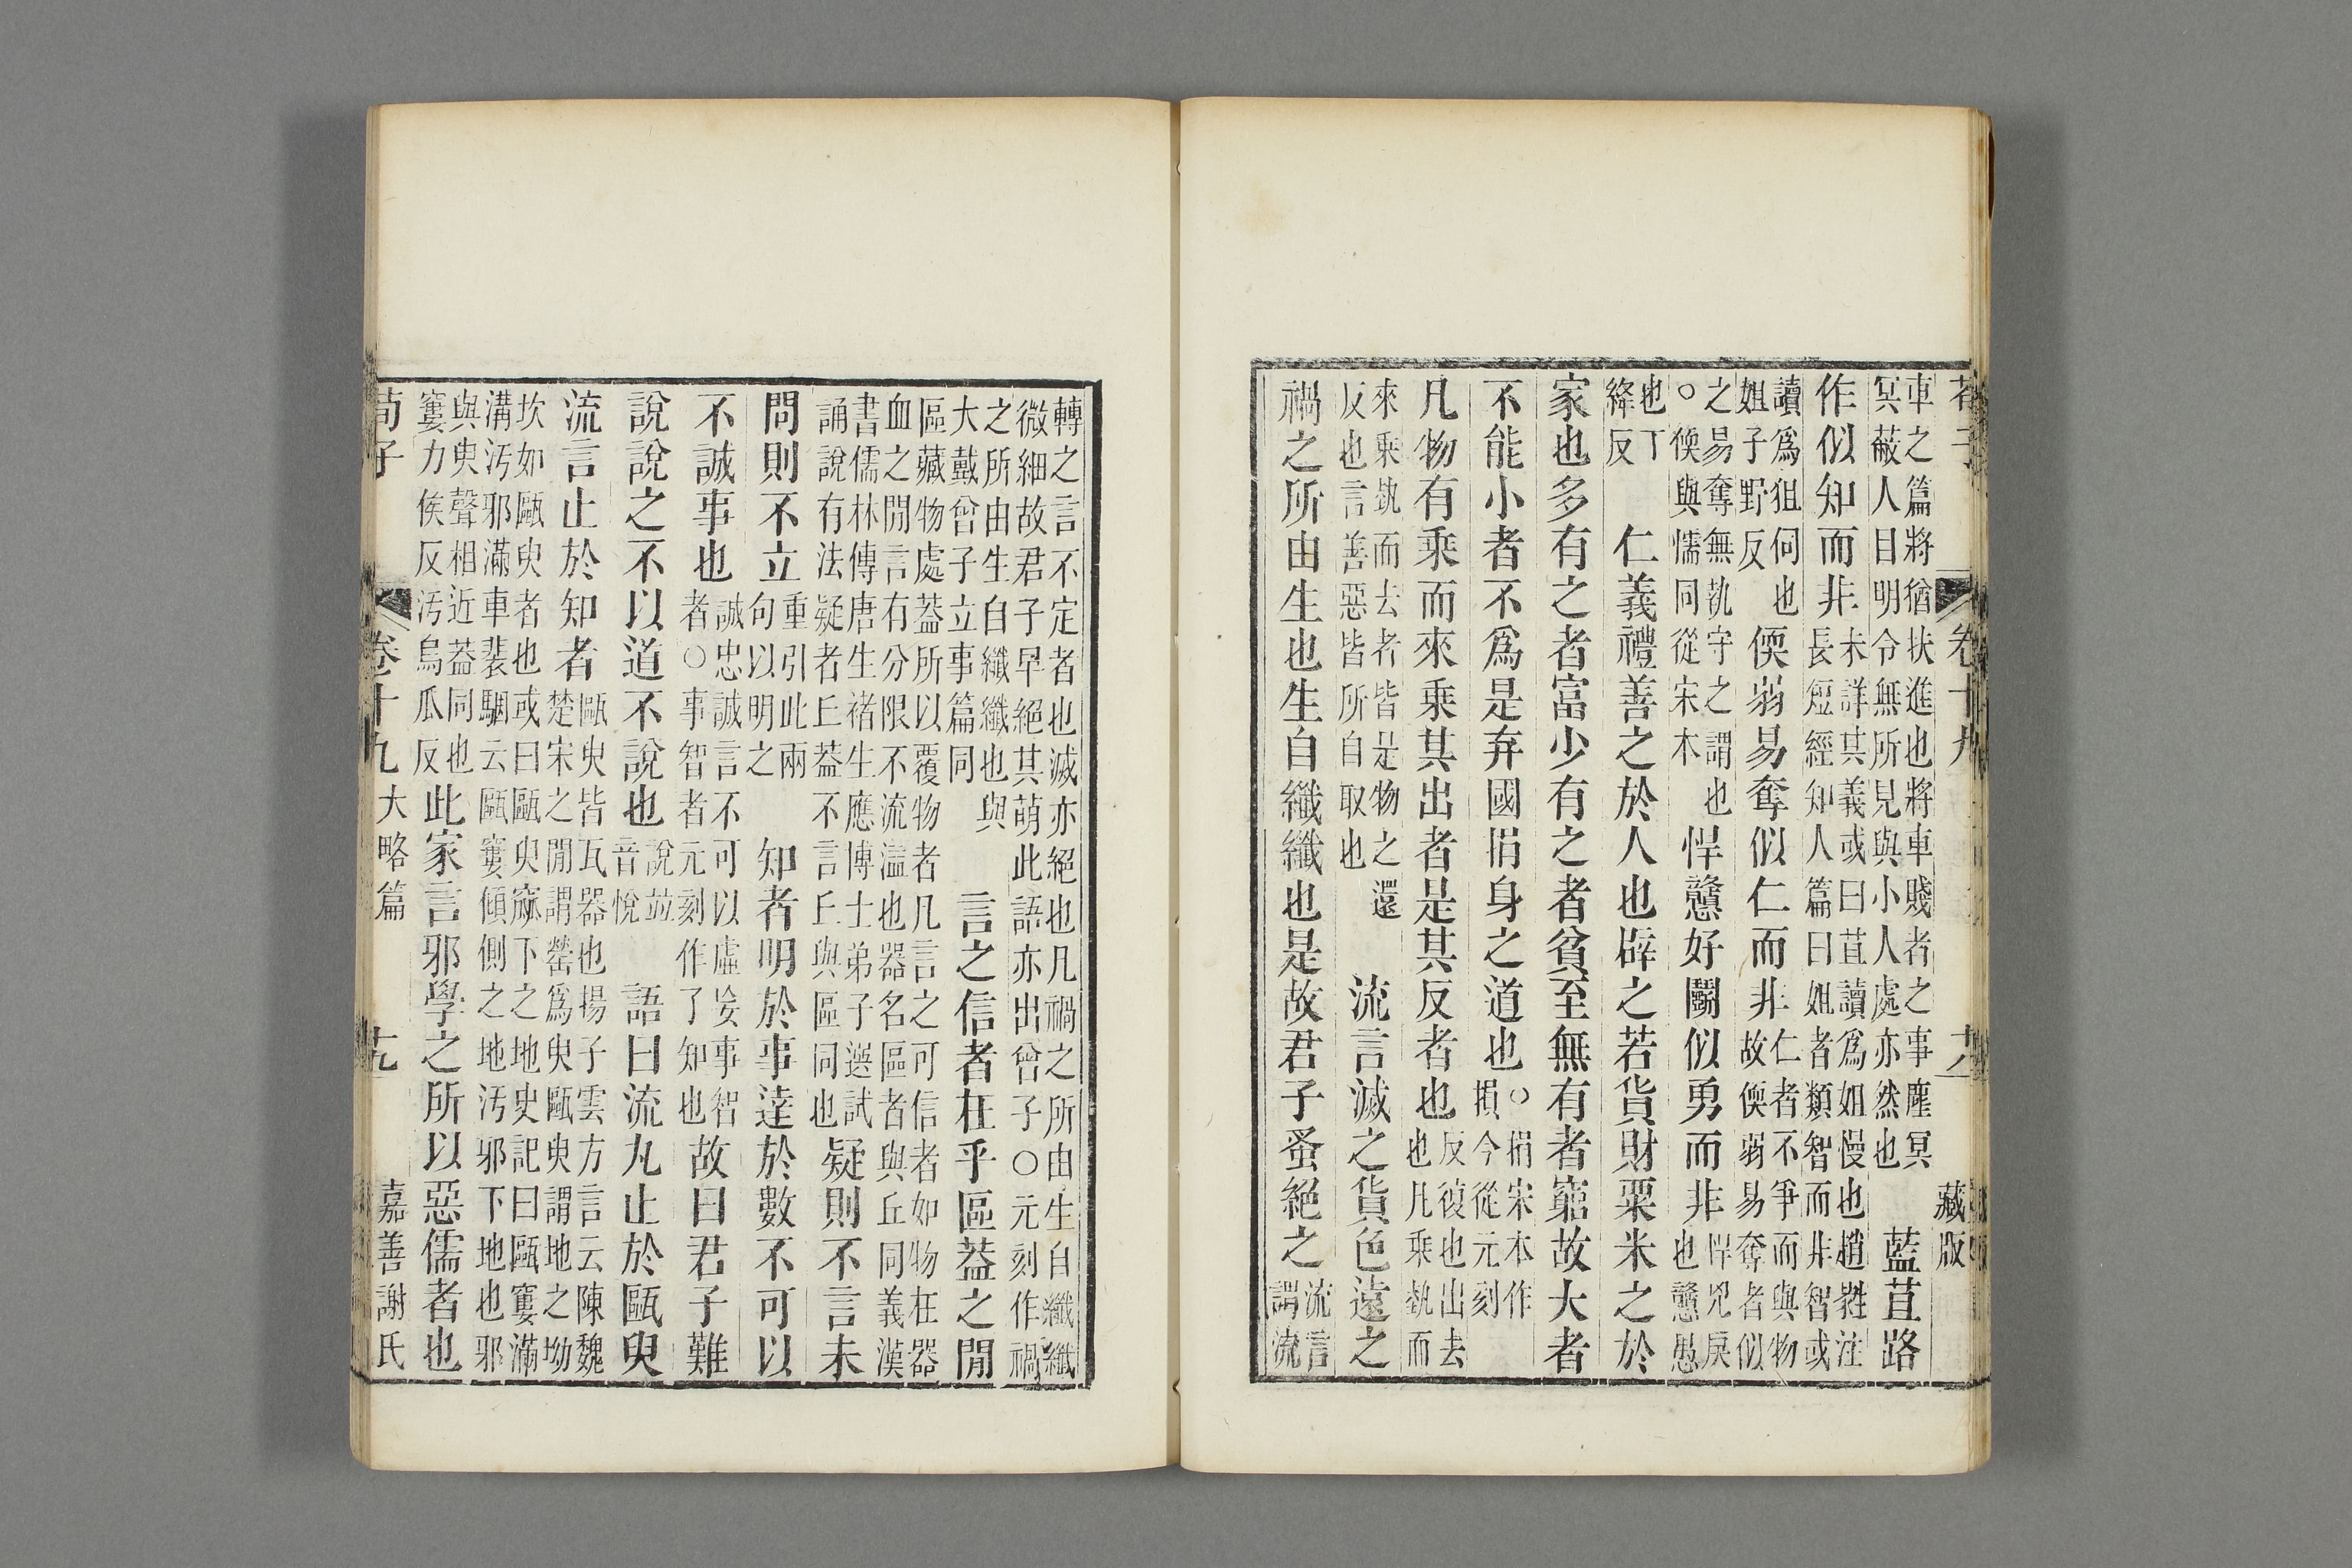 荀子 卷十九 十八 藏版
車之篇將猶扶進也將車賤者之事塵冥
冥蔽人目明令無所見與小人處亦然也
藍苴路
作似知而非
未詳其義或曰苴讀爲姐慢也趙蕤注
長短經知人篇曰姐者類智而非智或
讀爲狙伺也
姐子野反
偄弱易奪似仁而非
仁者不爭而與物
故偄弱易奪者似
之易奪無執守之謂也
○偄與懦同從宋本
悍戇好鬭似勇而非
悍兇戾
也戇愚
也丁
絳反
仁義禮善之於人也辟之若貨財粟米之於
家也多有之者富少有之者貧至無有者窮故大者
不能小者不爲是弃國捐身之道也
○捐宋本作
損今從元刻
凡物有乘而來乘其出者是其反者也
反復也出去
也凡乘埶而
來乘埶而去者皆是物之還
反也言善惡皆所自取也
流言滅之貨色遠之
禍之所由生也生自纖纖也是故君子蚤絕之
流言
謂流
轉之言不定者也滅亦絕也凡禍之所由生自纖纖
微細故君子早絕其萌此語亦出曾子○元刻作禍
之所由生自纖纖也與
大戴曾子立事篇同
言之信者在乎區蓋之閒
區藏物處蓋所以覆物者凡言之可信者如物在器
血之閒言有分限不流溢也器名區者與丘同義漢
書儒林傳唐生褚生應博士弟子選試
誦說有法疑者丘蓋不言丘與區同也
疑則不言未
問則不立
重引此兩
句以明之
知者明於事達於數不可以
不誠事也
誠忠誠言不可以虛妄事智
者○事智者元刻作了知也
故曰君子難
說說之不以道不說也
說並
音悅
語曰流丸止於甌臾
流言止於知者
甌臾皆瓦器也揚子雲方言云陳魏
楚宋之閒謂罃爲臾甌臾謂地之坳
坎如甌臾者也或曰甌臾窳下之地史記曰甌窶滿
溝汚邪滿車裴駰云甌窶傾側之地汚邪下地也邪
與臾聲相近蓋同也
窶力侯反汚烏瓜反
此家言邪學之所以惡儒者也
荀子 卷十九 大略篇 十九 嘉善謝氏